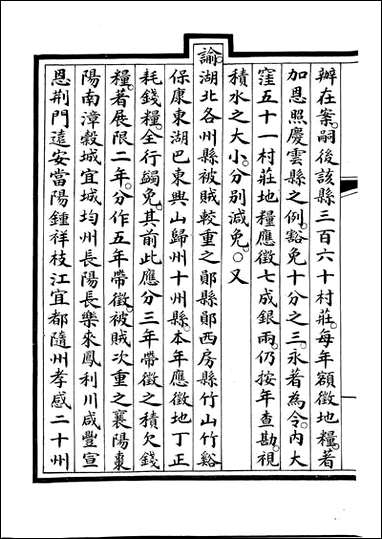 辦在案。嗣後該縣三百六十村莊。每年額徵地糧。著
加恩照慶雲縣之例。豁免十分之三。永著為令。內大
窪五十一村莊地糧應徵七成銀兩。仍按年查勘。視
積水之大小。分別減免。○又
諭湖北各州縣被賊較重之鄖縣鄖西房縣竹山竹谿
保康東湖巴東興山歸州十州縣。本年應徵地丁正
耗錢糧。全行蠲免。其前此應分三年帶徵之積欠錢
糧。著展限二年。分作五年帶徵。被賊次重之襄陽棗
陽南漳穀城宜城均州長陽長樂來鳳利川咸豐宣
恩荊門遠安當陽鍾祥枝江宜都隨州孝感二十州